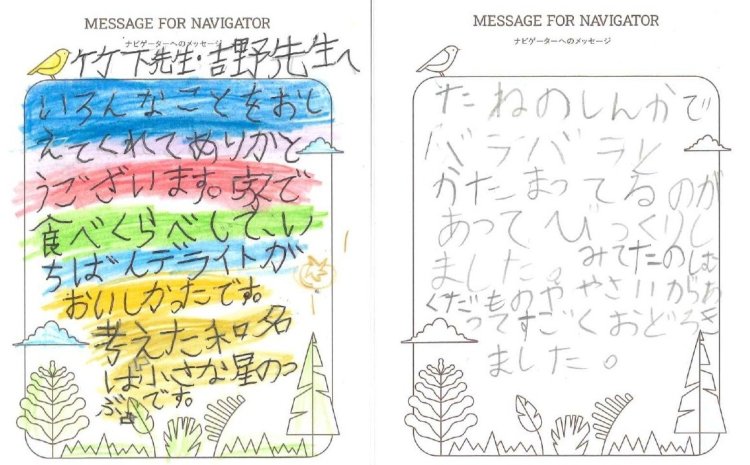 MESSAGE FOR NAVIGATOR
ナビゲーターへのメッセージ
竹下先生・吉野先生へ
いろんなことをおし
えてくれてありがと
うございます。家で
食べくらべして、い
ちばんデライトが
おいしかったです。
考えた和名
は小さな星のつ
ぶです。
MESSAGE FOR NAVIGATOR
ナビゲーターへのメッセージ
たねのしんかで
バラバラと
かたまってるのが
あってびっくりし
ました。みてたのは
くだものややさいがらわ
ってすごくおどろき
ました。